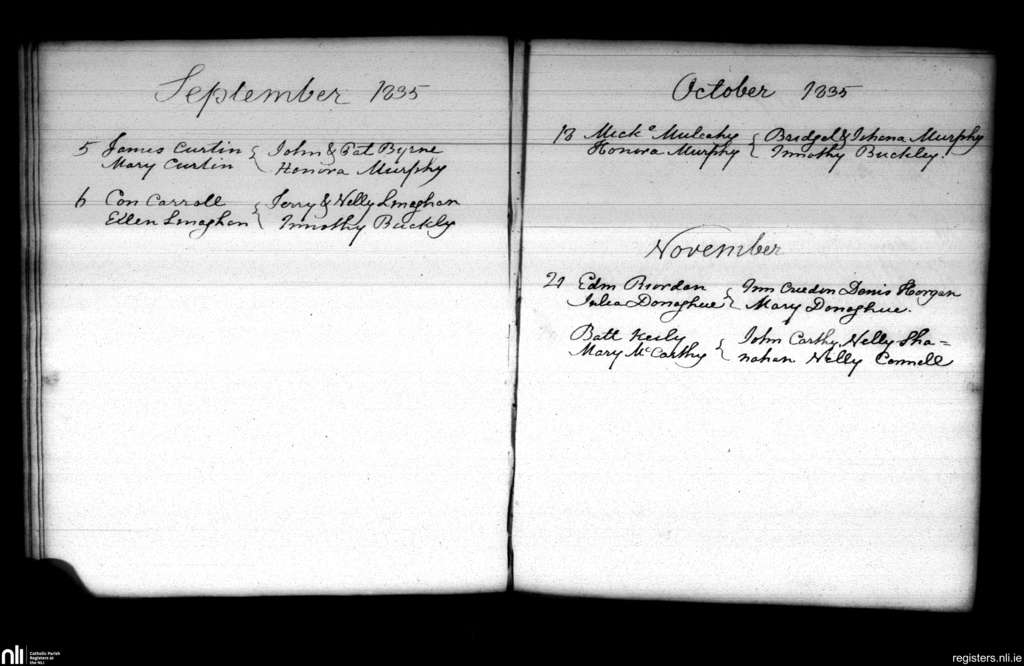 September 1835
5 James Curtin { John & Pat Byrne
Mary Curtin Honora Murphy
6 Con Carroll { Jerry & Nelly Linaghan
Ellen Linaghan Timothy Buckly
October 1835
13 Mick° Mulcahy { Bridget & Johana Murphy
Honora Murphy Timothy Buckley.
November
Edm Riordan { Creedon Denis Horgan
Julia Donaghue Mary Donaghue.
Batt Keily { John Carthy Nelly Sha=
Mary McCarthy nahan Nelly Connell
nli
Catholic Parish
Registers at
the NLI
registers.nli.ie